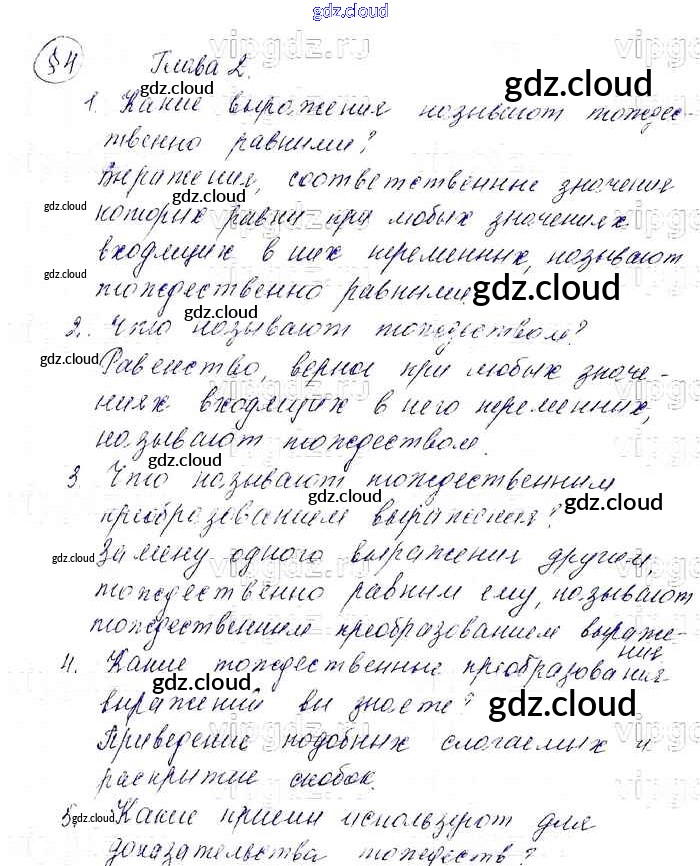 gdz.cloud
§4 Глава 2.
1. Какие выражения называют тождес-
твенно равными?
Выражения, соответственные значения
которых равны при любых значениях
входящих в них переменных, называют
тождественно равными.
2. Что называют тождеством?
Равенство, верное при любых значе-
ниях входящих в него переменных,
называют тождеством.
3. Что называют тождественным
преобразованием выражения?
Замену одного выражения другим,
тождественно равным ему, называют
тождественным преобразованием выраже-
ния
4. Какие тождественные преобразования
выражений вы знаете?
Приведение подобных слагаемых и
раскрытие скобок.
5. Какие приемы используют для
доказательства тождеств?